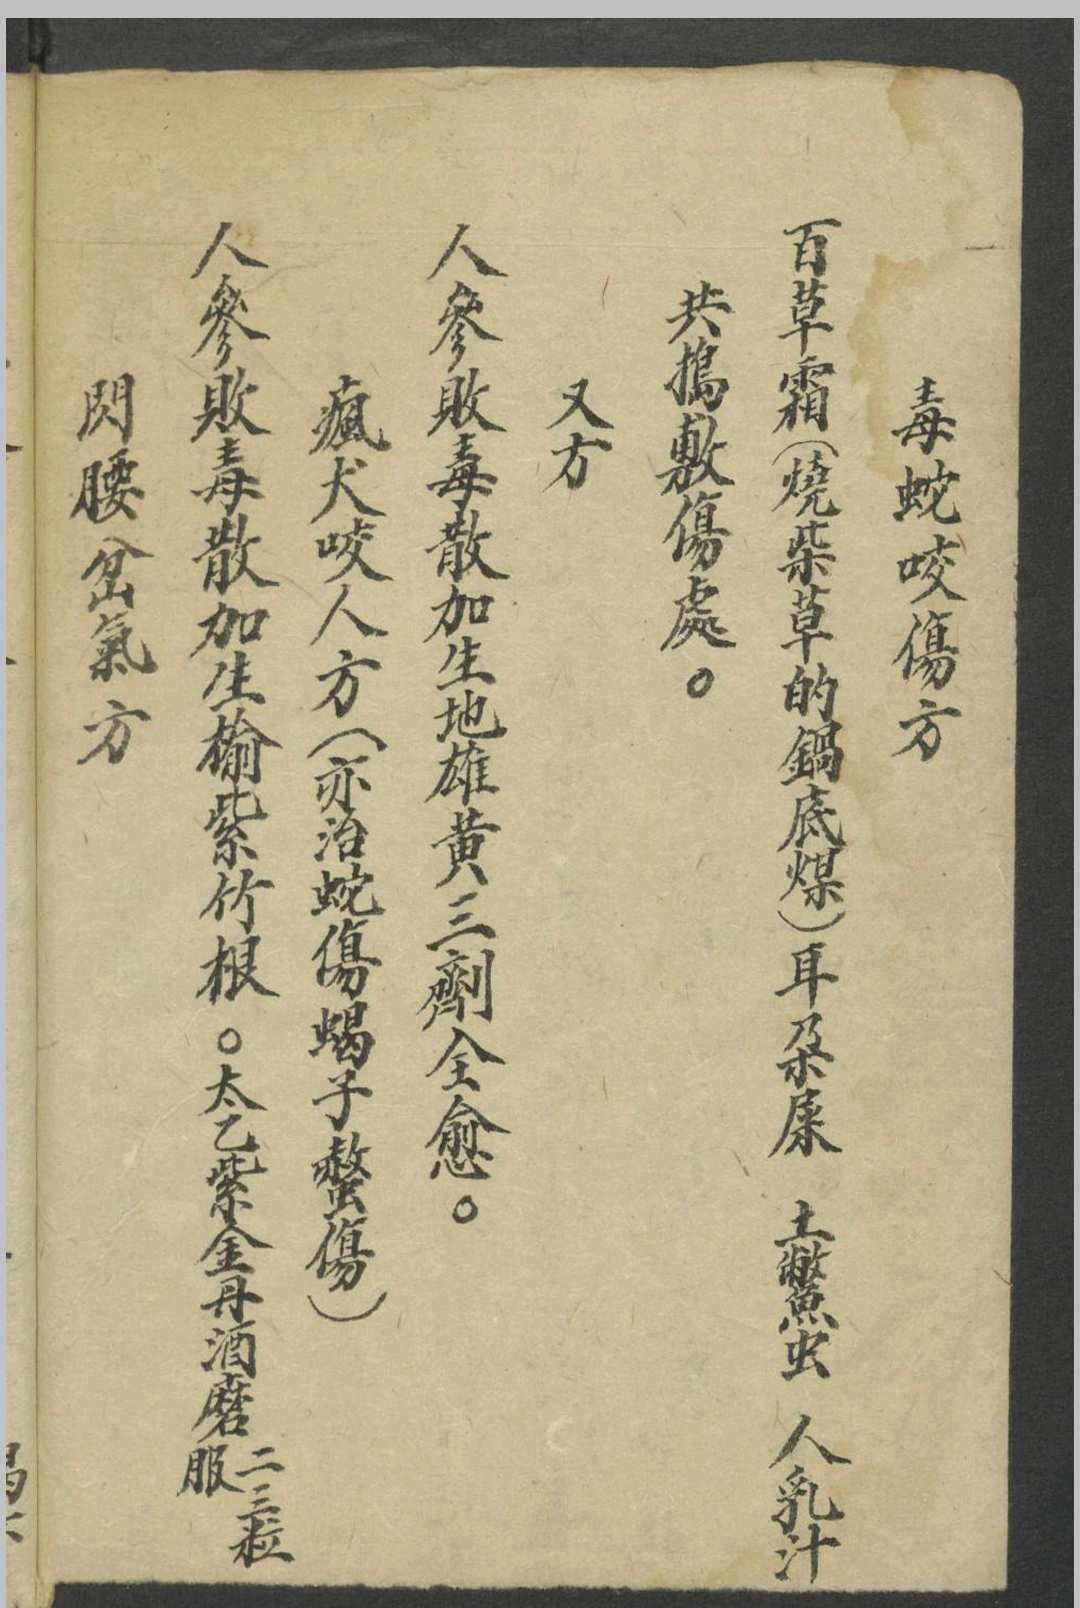 毒蛇咬傷方
百草霜(燒柴草的鍋底煤)耳朶屎 土鱉虫 人乳汁
共搗敷傷處。
又方
人參敗毒散加生地雄黃三劑全愈。
瘋犬咬人方(亦治蛇傷蝎子螫傷)
人參敗毒散加生榆紫竹根。太乙紫金丹酒磨服二三粒
閃腰岔氣方